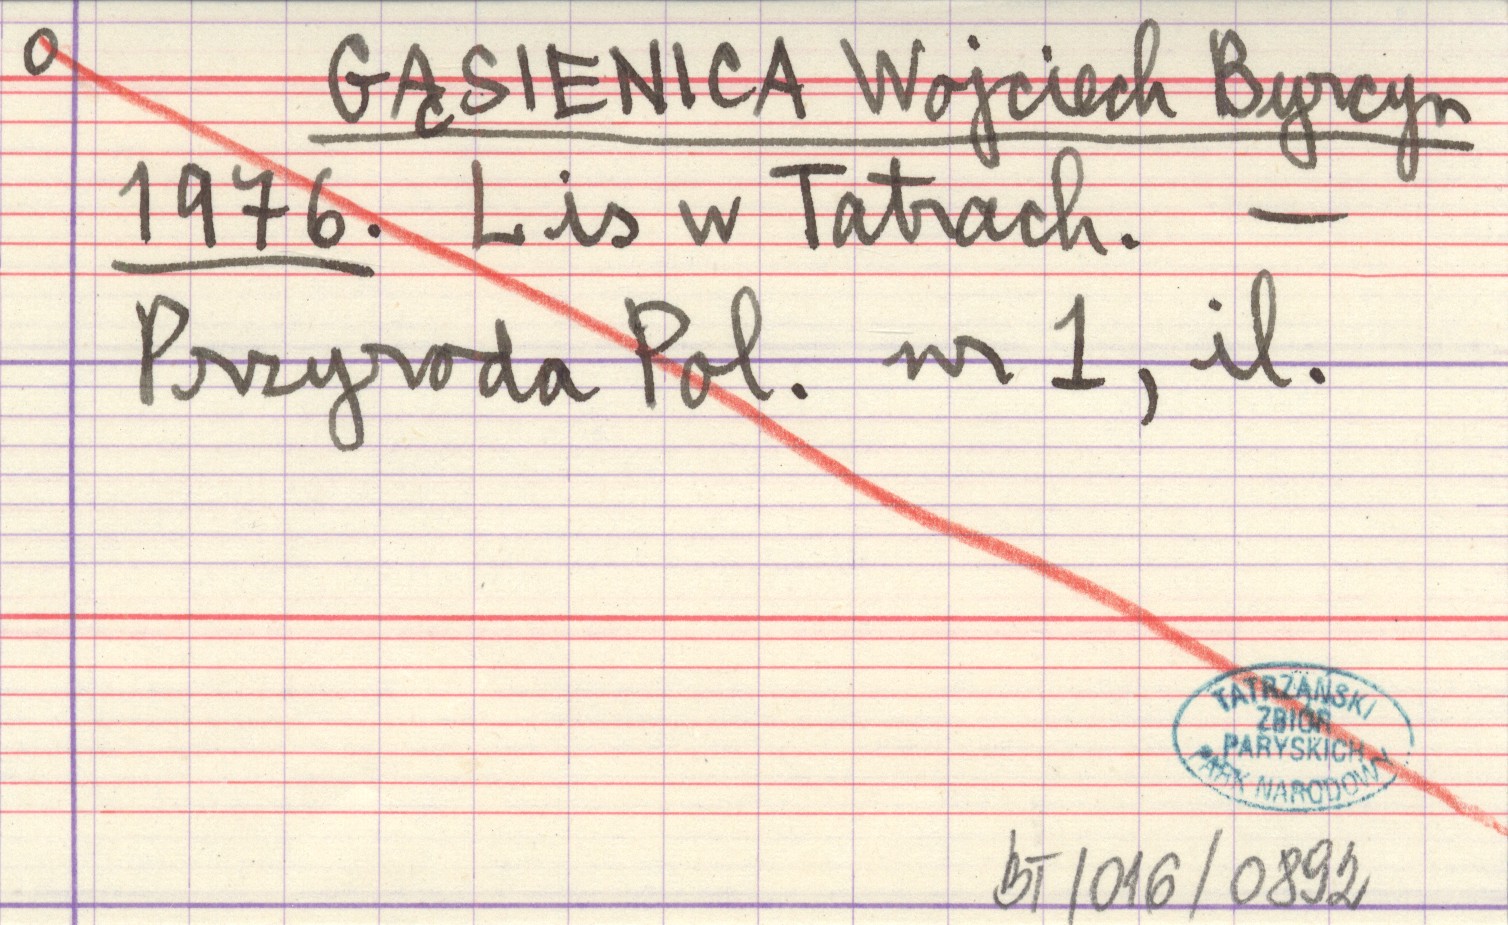 O
GĄSIENICA Wojciech Byrcyn
1976. Lis w Tatrach. —
Przyroda Pol. nr 1, il.
TATRZAŃSKI
ZBIÓR
PARYSKICH
PARK NARODOWY
BT/016/0892